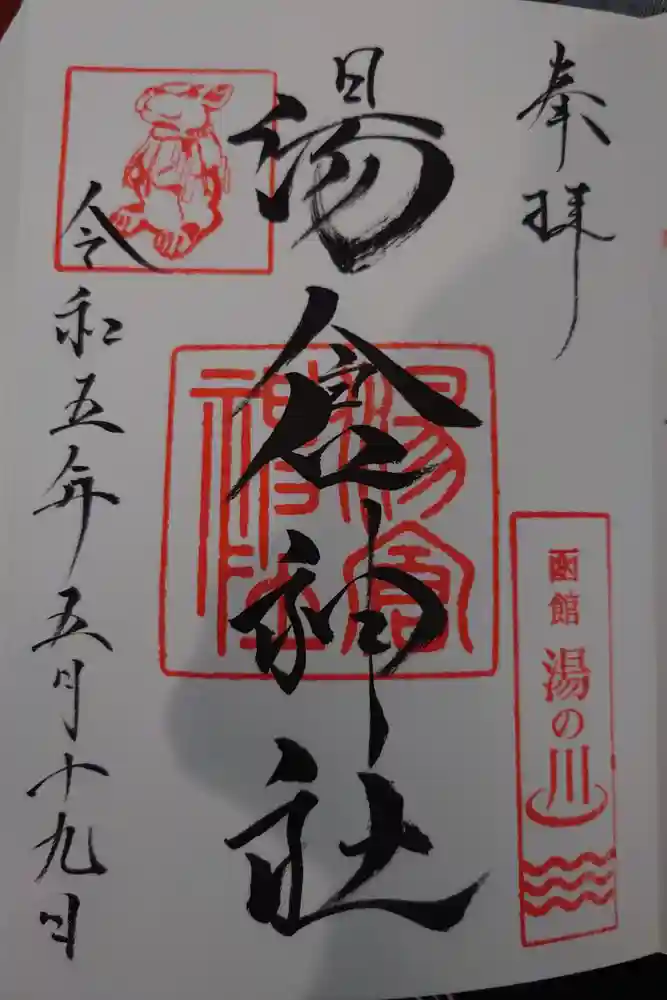 奉拝
函館 湯の川
湯倉神社
湯倉神社
令和五年五月十九日